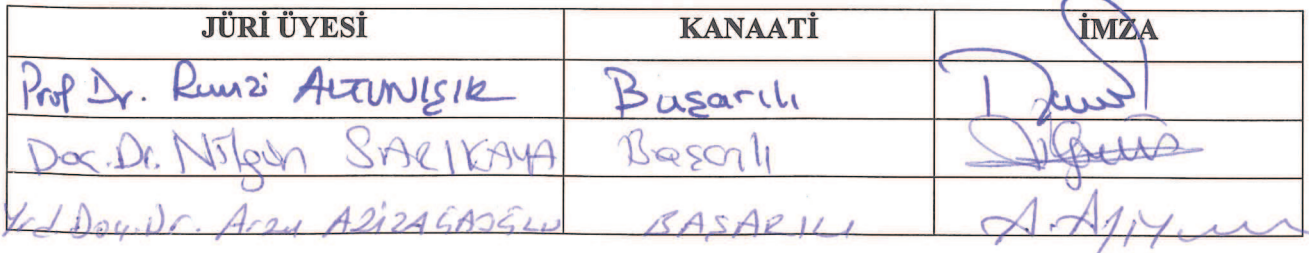 JÜRİ ÜYESİ KANAATİ İMZA
Prof Dr. Remzi ALTUNIŞIK Başarılı
Doç.Dr. Nilgün SARIKAYA Başarılı
Yrd.Doç.Dr. Arzu AZİZAĞAOĞLU BAŞARILI